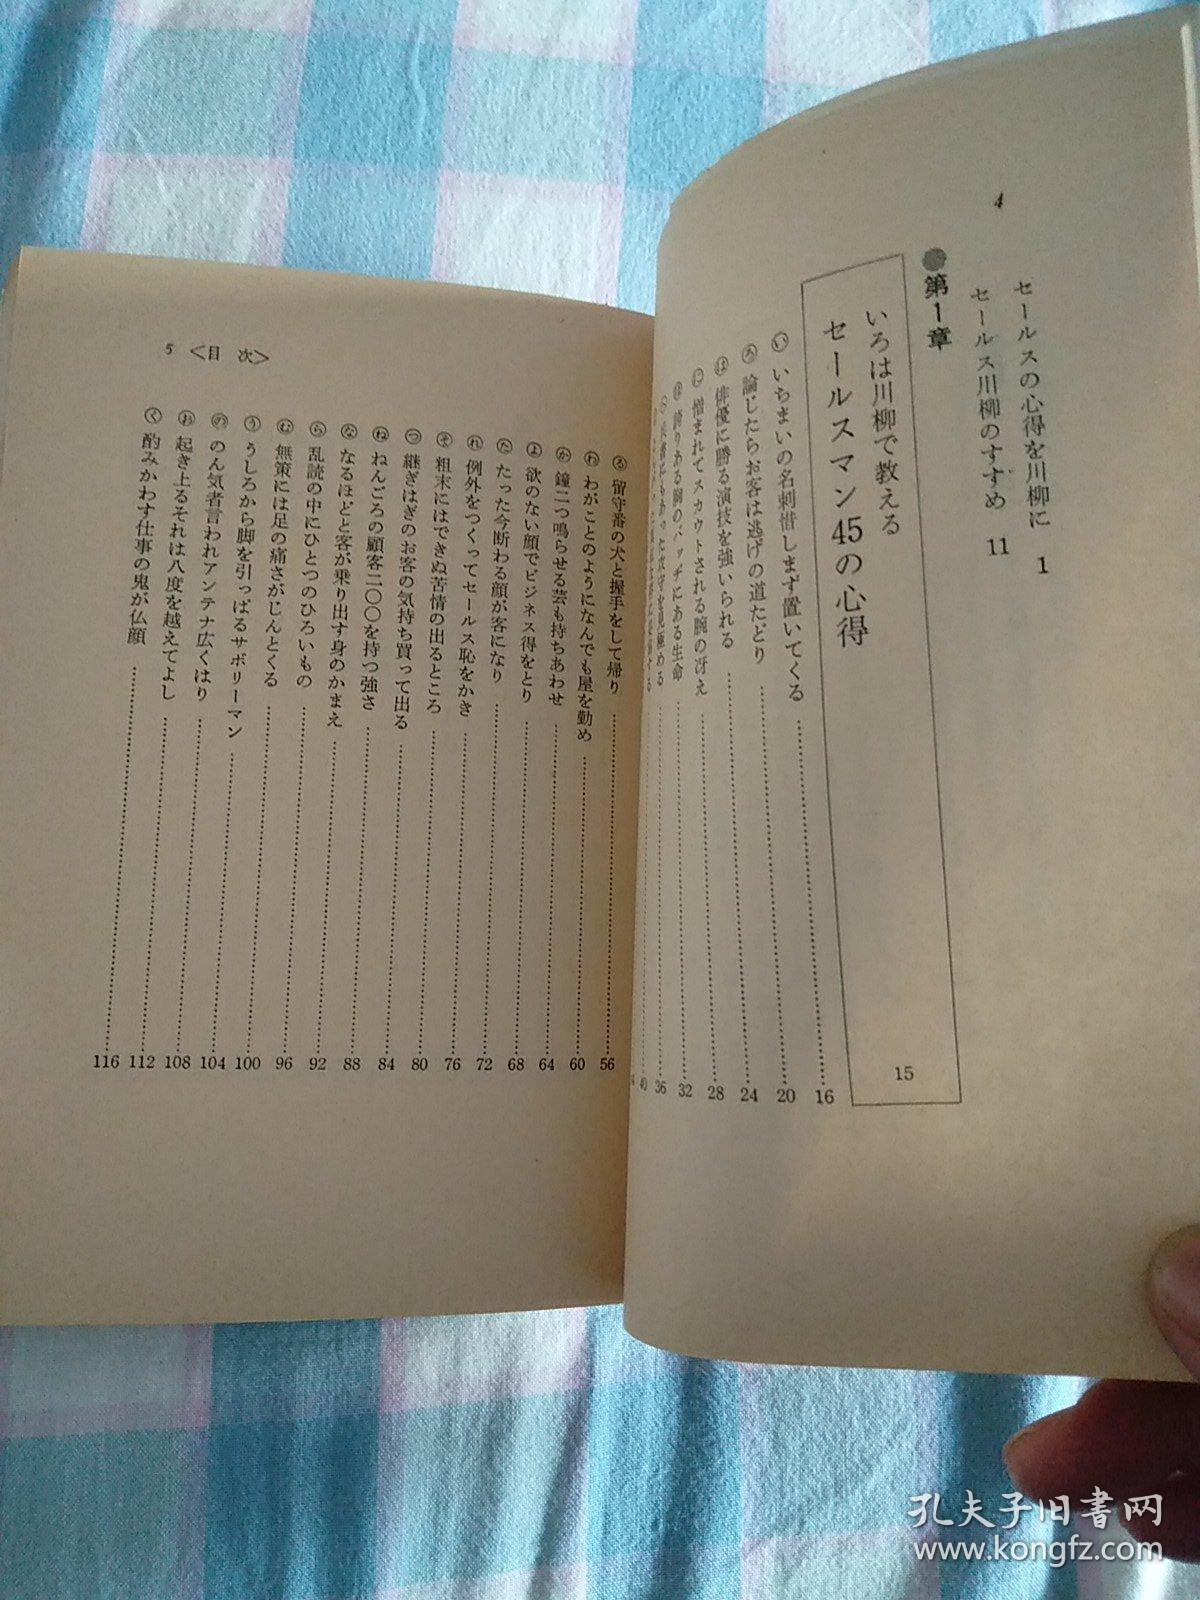 4
セールスの心得を川柳に 1
セールス川柳のすずめ 11
第1章
いろは川柳で教える
セールスマン45の心得 15
い いちまいの名刺惜しまず置いてくる 16
ろ 論じたらお客は逃げの道たどり 20
は 俳優に勝る演技を強いられる 24
に 憎まれてスカウトされる腕の冴え 28
ほ 誇りある胸のバッヂにある生命 32
36
40
5 <目次>
る 留守番の犬と握手をして帰り 56
わ わがことのようになんでも屋を勤め 60
か 鐘二つ鳴らせる芸も持ちあわせ 64
よ 欲のない顔でビジネス得をとり 68
た たった今断わる顔が客になり 72
れ 例外をつくってセールス恥をかき 76
そ 粗末にはできぬ苦情の出るところ 80
つ 継ぎはぎのお客の気持ち買って出る 84
ね ねんごろの顧客二〇〇を持つ強さ 88
な なるほどと客が乗り出す身のかまえ 92
ら 乱読の中にひとつのひろいもの 96
む 無策には足の痛さがじんとくる 100
う うしろから脚を引っぱるサボリーマン 104
の のん気者言われアンテナ広くはり 108
お 起き上るそれは八度を越えてよし 112
く 酌みかわす仕事の鬼が仏顔 116
孔夫子旧书网
www.kongfz.com